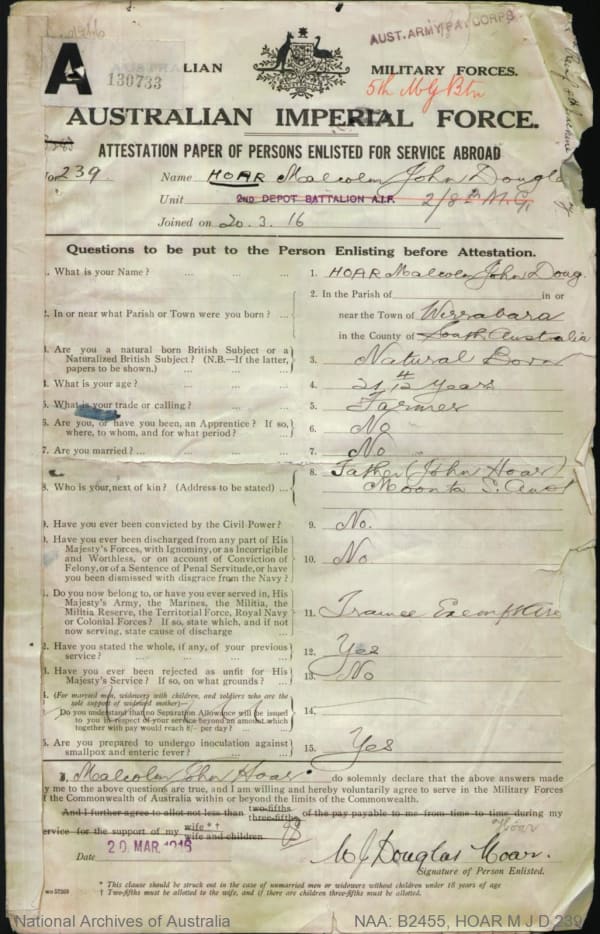 AUST. ARMY PAY CORPS
A
130733
LIAN MILITARY FORCES.
5th MG Btn
AUSTRALIAN IMPERIAL FORCE.
ATTESTATION PAPER OF PERSONS ENLISTED FOR SERVICE ABROAD
239. Name HOAR Malcolm John Dougla
Unit 2ND DEPOT BATTALION A.I.F. 2/8th M.G.
Joined on 20.3.16
Questions to be put to the Person Enlisting before Attestation.
1. What is your Name? ... ... ... 1. HOAR Malcolm John Doug.
2. In the Parish of in or
2. In or near what Parish or Town were you born? ... near the Town of Wirrabara
in the County of South Australia
3. Are you a natural born British Subject or a
Naturalized British Subject? (N.B.—If the latter,
papers to be shown.) ... ... 3. Natural Born
4. What is your age? ... ... ... 4. 21 4/12 years
5. What is your trade or calling? ... ... 5. Farmer
6. Are you, or have you been, an Apprentice? If so,
where, to whom, and for what period? ... 6. No
7. Are you married? ... ... ... ... 7. No
8. Father (John Hoar)
8. Who is your next of kin? (Address to be stated) ... Moonta S. Aust
9. Have you ever been convicted by the Civil Power? 9. No.
10. Have you ever been discharged from any part of His
Majesty's Forces, with Ignominy, or as Incorrigible
and Worthless, or on account of Conviction of
Felony, or of a Sentence of Penal Servitude, or have
you been dismissed with disgrace from the Navy? 10. No
11. Do you now belong to, or have you ever served in, His
Majesty's Army, the Marines, the Militia, the
Militia Reserve, the Territorial Force, Royal Navy
or Colonial Forces? If so, state which, and if not
now serving, state cause of discharge ... 11. Trainee Exempt Area
12. Have you stated the whole, if any, of your previous
service? ... ... ... 12. Yes
13. Have you ever been rejected as unfit for His
Majesty's Service? If so, on what grounds? ... 13. No
14. (For married men, widowers with children, and soldiers who are the
sole support of widowed mother)—
Do you understand that no Separation Allowance will be issued
to you in respect of your service beyond an amount which
together with pay would reach 8/- per day? ... 14.
15. Are you prepared to undergo inoculation against
smallpox and enteric fever? ... ... 15. Yes
I, Malcolm John Hoar do solemnly declare that the above answers made
by me to the above questions are true, and I am willing and hereby voluntarily agree to serve in the Military Forces
of the Commonwealth of Australia within or beyond the limits of the Commonwealth.
And I further agree to allot not less than two-fifths three-fifths of the pay payable to me from time to time during my
service for the support of my wife * † wife and children
Hoar
Date 20 MAR. 1916 M J Douglas Hoar.
Signature of Person Enlisted.
* This clause should be struck out in the case of unmarried men or widowers without children under 18 years of age
† Two-fifths must be allotted to the wife, and if there are children three-fifths must be allotted.
National Archives of Australia NAA: B2455, HOAR M J D 239